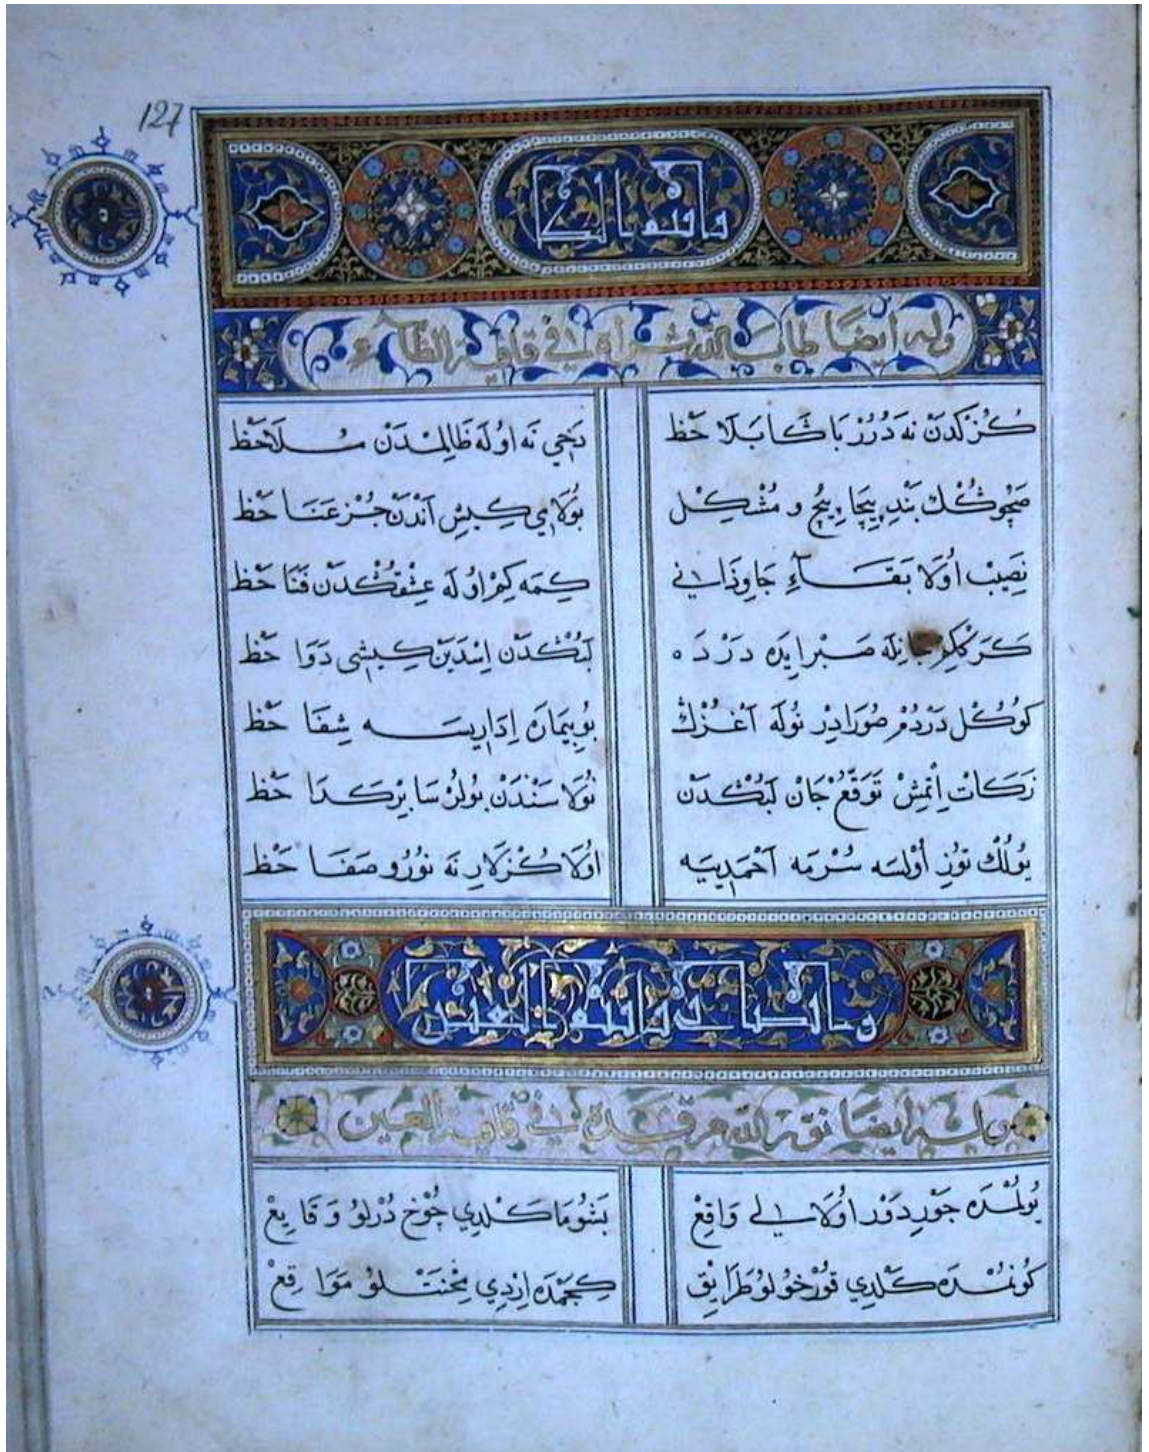 127
وله أيضا طاب الله ثراه في قافية الظاء
كُزكدَنْ نه دُرُرْ باڭا بَلَا حَظ
دَخِي نَه اوُلَه ظَالِمدَنْ مُلَاحَظ
صَچوڭُكْ بَندِ پیچا پیچُ و مُشْكِلْ
بُولَامي كِيشِ آنْدَنْ جُزْ عَنَا حَظ
نَصِيبْ اوُلَا بَقَآءِ جَاوِدَانِي
كِمَه كِمْ اوُلَه عِشْقُڭدَنْ فَنَا حَظ
كَرَكْمِكِمْ جَانِلَه صَبْر ايدَه دَرْدَه
لَبُڭْدَنْ اِسْدَيَنْ كِيشِي دَوَا حَظ
كوُڭُلْ دَرْدُمْ صُورَادِرْ نُولَه آغْزُڭْ
بُو بِيمَارَه اِدَارِيسَه شِفَا حَظ
زَكَاتْ اِتْمِشْ تَوَقُّعْ جَانْ لَبُڭْدَنْ
نُولَا سَنْدَنْ بُولُرْسَا بِرْ كَدَا حَظ
يُولُڭْ تَوُزِ أوُلْسَه سُرْمَه آحْمَدِيَه
اوُلَا كُزْلَارِنَه نوُرُ و صَفَا حَظ
وله أيضا نور الله مرقده في قافية العين
يُولُمْدَه جَوْرِ دَوْر اوُلَالِي وَاقِعْ
بَشُومَا كَلْدِي چُوخْ دُرْلوُ وَقَايِعْ
كوُنُمْدَه كَلْدِي قوُرْخوُلوُ طَرَايِقْ
كِجَمْدَه اِرْدِي مِحْنَتْلوُ مَوَاقِعْ